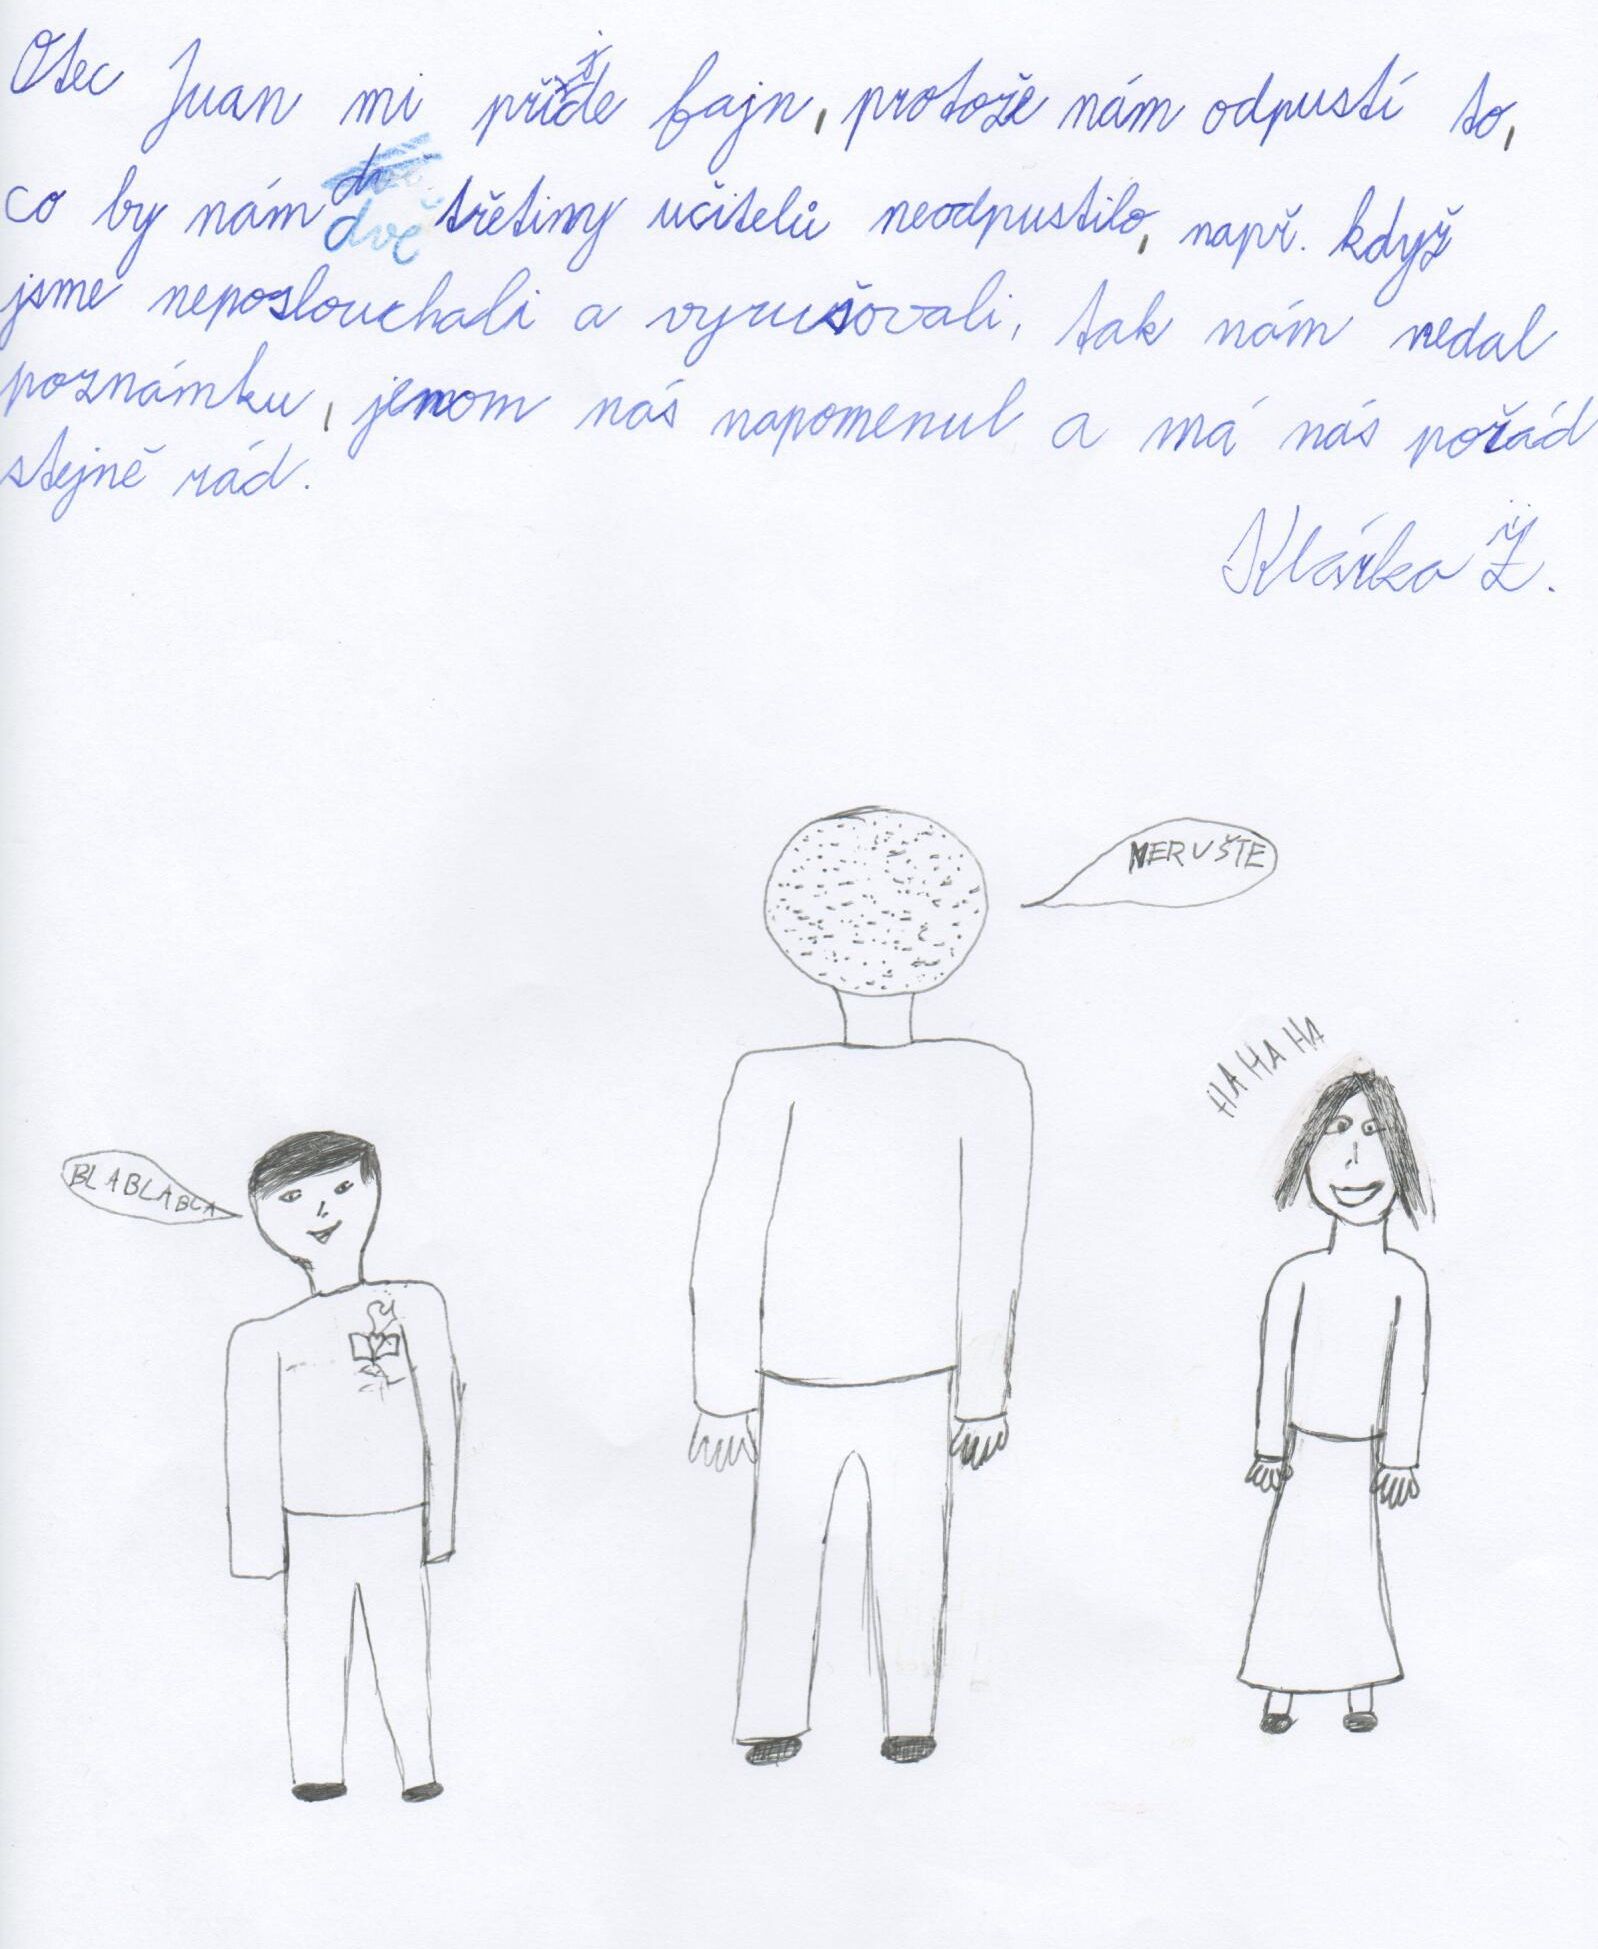 Otec Juan mi přijde fajn, protože nám odpustí to,
co by nám dvě třetiny učitelů neodpustilo, např. když
jsme neposlouchali a vyrušovali, tak nám nedal
poznámku, jenom nás napomenul a má nás pořád
stejně rád.
Klárka Ž.
NERUŠTE
HA HA HA
BLABLABLA